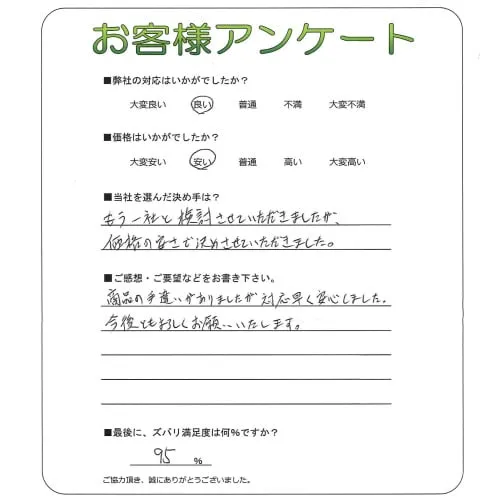 お客様アンケート
■弊社の対応はいかがでしたか?
大変良い 良い 普通 不満 大変不満
■価格はいかがでしたか?
大変安い 安い 普通 高い 大変高い
■当社を選んだ決め手は?
もう一社と検討させていただきましたが、
価格の安さで決めさせていただきました。
■ご感想・ご要望などをお書き下さい。
商品の手違いがありましたが対応早く安心しました。
今後ともよろしくお願いいたします。
■最後に、ズバリ満足度は何%ですか?
95 %
ご協力頂き、誠にありがとうございました。